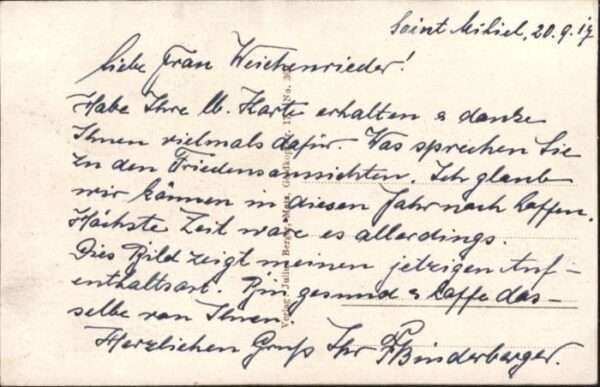 Saint Mihiel, 20.9.17
Liebe Frau Weichenrieder!
Habe Ihre lb. Karte erhalten & danke
Ihnen vielmals dafür. Was sprechen Sie
zu den Friedensaussichten. Ich glaube
wir können in diesen Jahr noch hoffen.
Höchste Zeit wäre es allerdings.
Dies Bild zeigt meinen jetzigen Auf-
enthaltsort. Bin gesund & hoffe das-
selbe von Ihnen.
Herzlichen Gruß Ihr Binderberger.
Verlag Julius Berg, Metz, Goldkopfstr. 13. No.